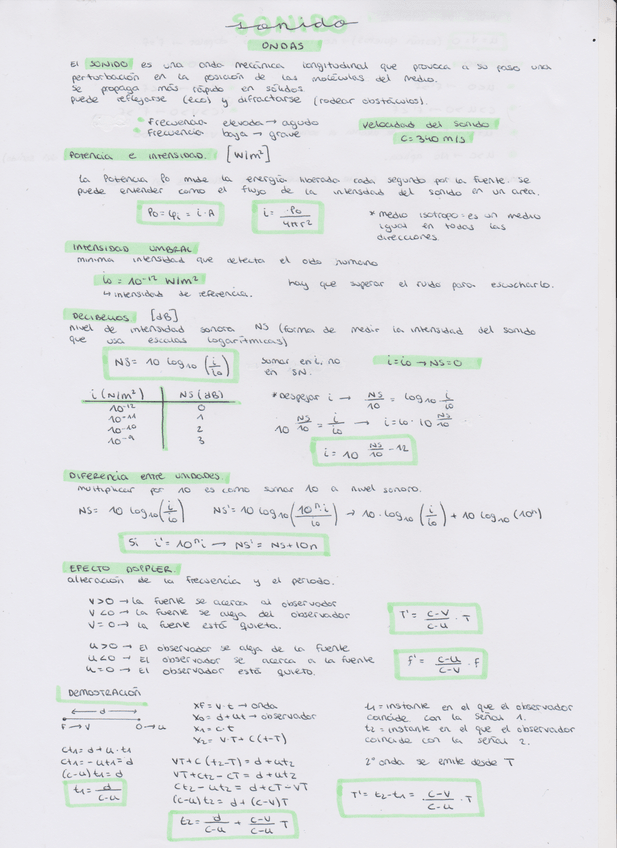 sonido
ONDAS
El SONIDO es una onda mecánica longitudinal que provoca a su paso una
perturbación en la posición de las moléculas del medio.
se propaga más rápido en sólidos.
puede reflejarse (eco) y difractarse (rodear obstáculos).
* Frecuencia elevada → agudo
* Frecuencia baja → grave
velocidad del sonido
C = 340 m/s
Potencia e intensidad. [W/m²]
La potencia Po mide la energía liberada cada segundo por la fuente. se
puede entender como el flujo de la intensidad del sonido en un area.
Po = φi = i · A
i = Po / 4πr²
* medio isotropo = es un medio
igual en todas las
direcciones.
INTENSIDAD UMBRAL
minima intensidad que detecta el oido humano
io = 10⁻¹² W/m²
hay que superar el ruido para escucharlo.
↳ intensidad de referencia.
DECIBELIOS [dB]
nivel de intensidad sonora NS (forma de medir la intensidad del sonido
que usa escalas logarítmicas)
NS = 10 log10 (i/io)
sumar en i, no
en SN.
i = io → NS = 0
i (N/m²) NS (dB)
10⁻¹² 0
10⁻¹¹ 1
10⁻¹⁰ 2
10⁻⁹ 3
* Despejar i → NS/10 = log10 i/io
10^(NS/10) = i/io → i = io · 10^(NS/10)
i = 10^(NS/10 − 12)
Diferencia entre unidades
multiplicar por 10 es como sumar 10 a nivel sonoro.
NS = 10 log10 (i/io) NS' = 10 log10 (10ⁿ · i/io) → 10 · log10 (i/io) + 10 log10 (10ⁿ)
Si i' = 10ⁿ i → NS' = NS + 10n
EFECTO DOPPLER.
alteración de la frecuencia y el período.
V > 0 → la fuente se acerca al observador
V < 0 → la fuente se aleja del observador
V = 0 → la fuente está quieta.
T' = (c − v)/(c − u) · T
u > 0 → El observador se aleja de la fuente
u < 0 → El observador se acerca a la fuente
u = 0 → El observador está quieto.
f' = (c − u)/(c − v) · f
DEMOSTRACIÓN
← d →
F → V O → u
Ct1 = d + u · t1
Ct1 = − ut1 = d
(c − u) t1 = d
t1 = d/(c − u)
XF = V · t → onda
Xo = d + ut → observador
X1 = c · t
X2 = V · T + C (t − T)
VT + C (t2 − T) = d + ut2
VT + Ct2 − CT = d + ut2
Ct2 − ut2 = d + CT − VT
(c − u) t2 = d + (c − v) T
t2 = d/(c − u) + (c − v)/(c − u) T
t1 = instante en el que el observador
coincide con la señal 1.
t2 = instante en el que el observador
coincide con la señal 2.
2ª onda se emite desde T
T' = t2 − t1 = (c − v)/(c − u) · T